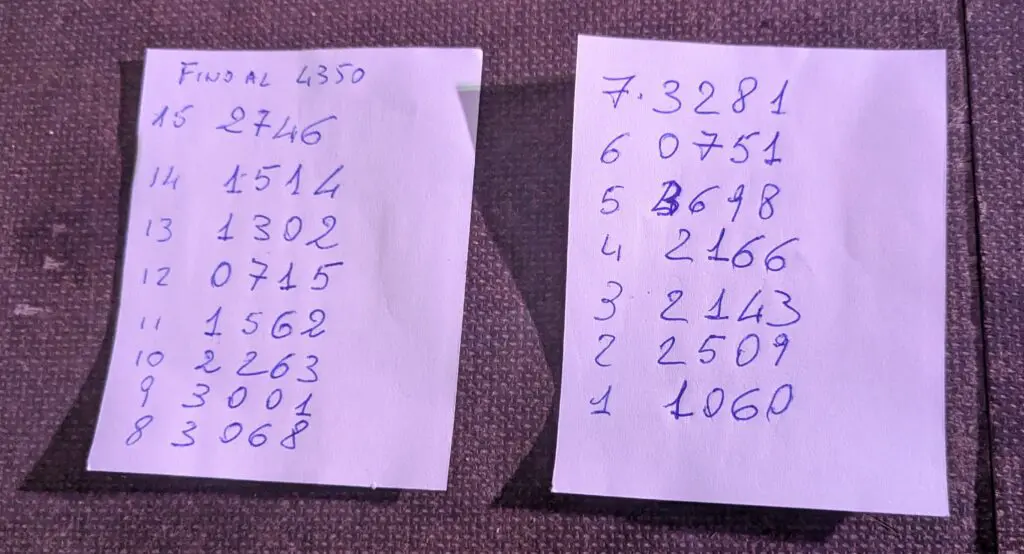 FINDAL 4350
15 2746
14 1514
13 1302
12 0715
11 1562
10 2263
9 3001
8 3068
7. 3281
6 0751
5 3698
4 2166
3 2143
2 2509
1 1060